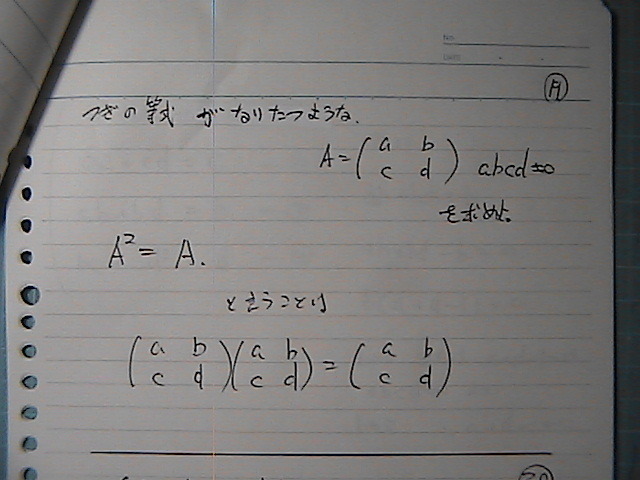 NO.
DATE
つぎの等式 がなりたつような.
A = ( a b ; c d ) abcd ≠ 0
を求めよ.
A² = A.
ということは
( a b ; c d )( a b ; c d ) = ( a b ; c d )